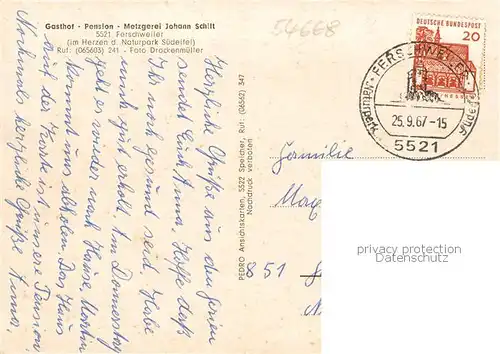 Gasthof - Pension - Metzgerei Johann Schilt
5521 Ferschweiler
(im Herzen d. Naturpark Südeifel)
Ruf: (065603) 241 - Foto Drockenmüller
54668
DEUTSCHE BUNDESPOST
20
FERSCHWEILER
25.9.67-15
5521
Herzliche Grüße aus den Ferien
sendet Euch Oma. Hoffe daß
Ihr noch gesund seid. Habe
mich gut erholt. Am Donnerstag
geht es wieder nach Hause. Martin
kommt uns abholen. Das Haus
auf der Karte ist unsere Pension
Nochmals herzliche Grüße Oma.
PEDRO Ansichtskarten, 5522 Speicher, Ruf: (06562) 347
Nachdruck verboten
Familie
851
privacy protection
Datenschutz